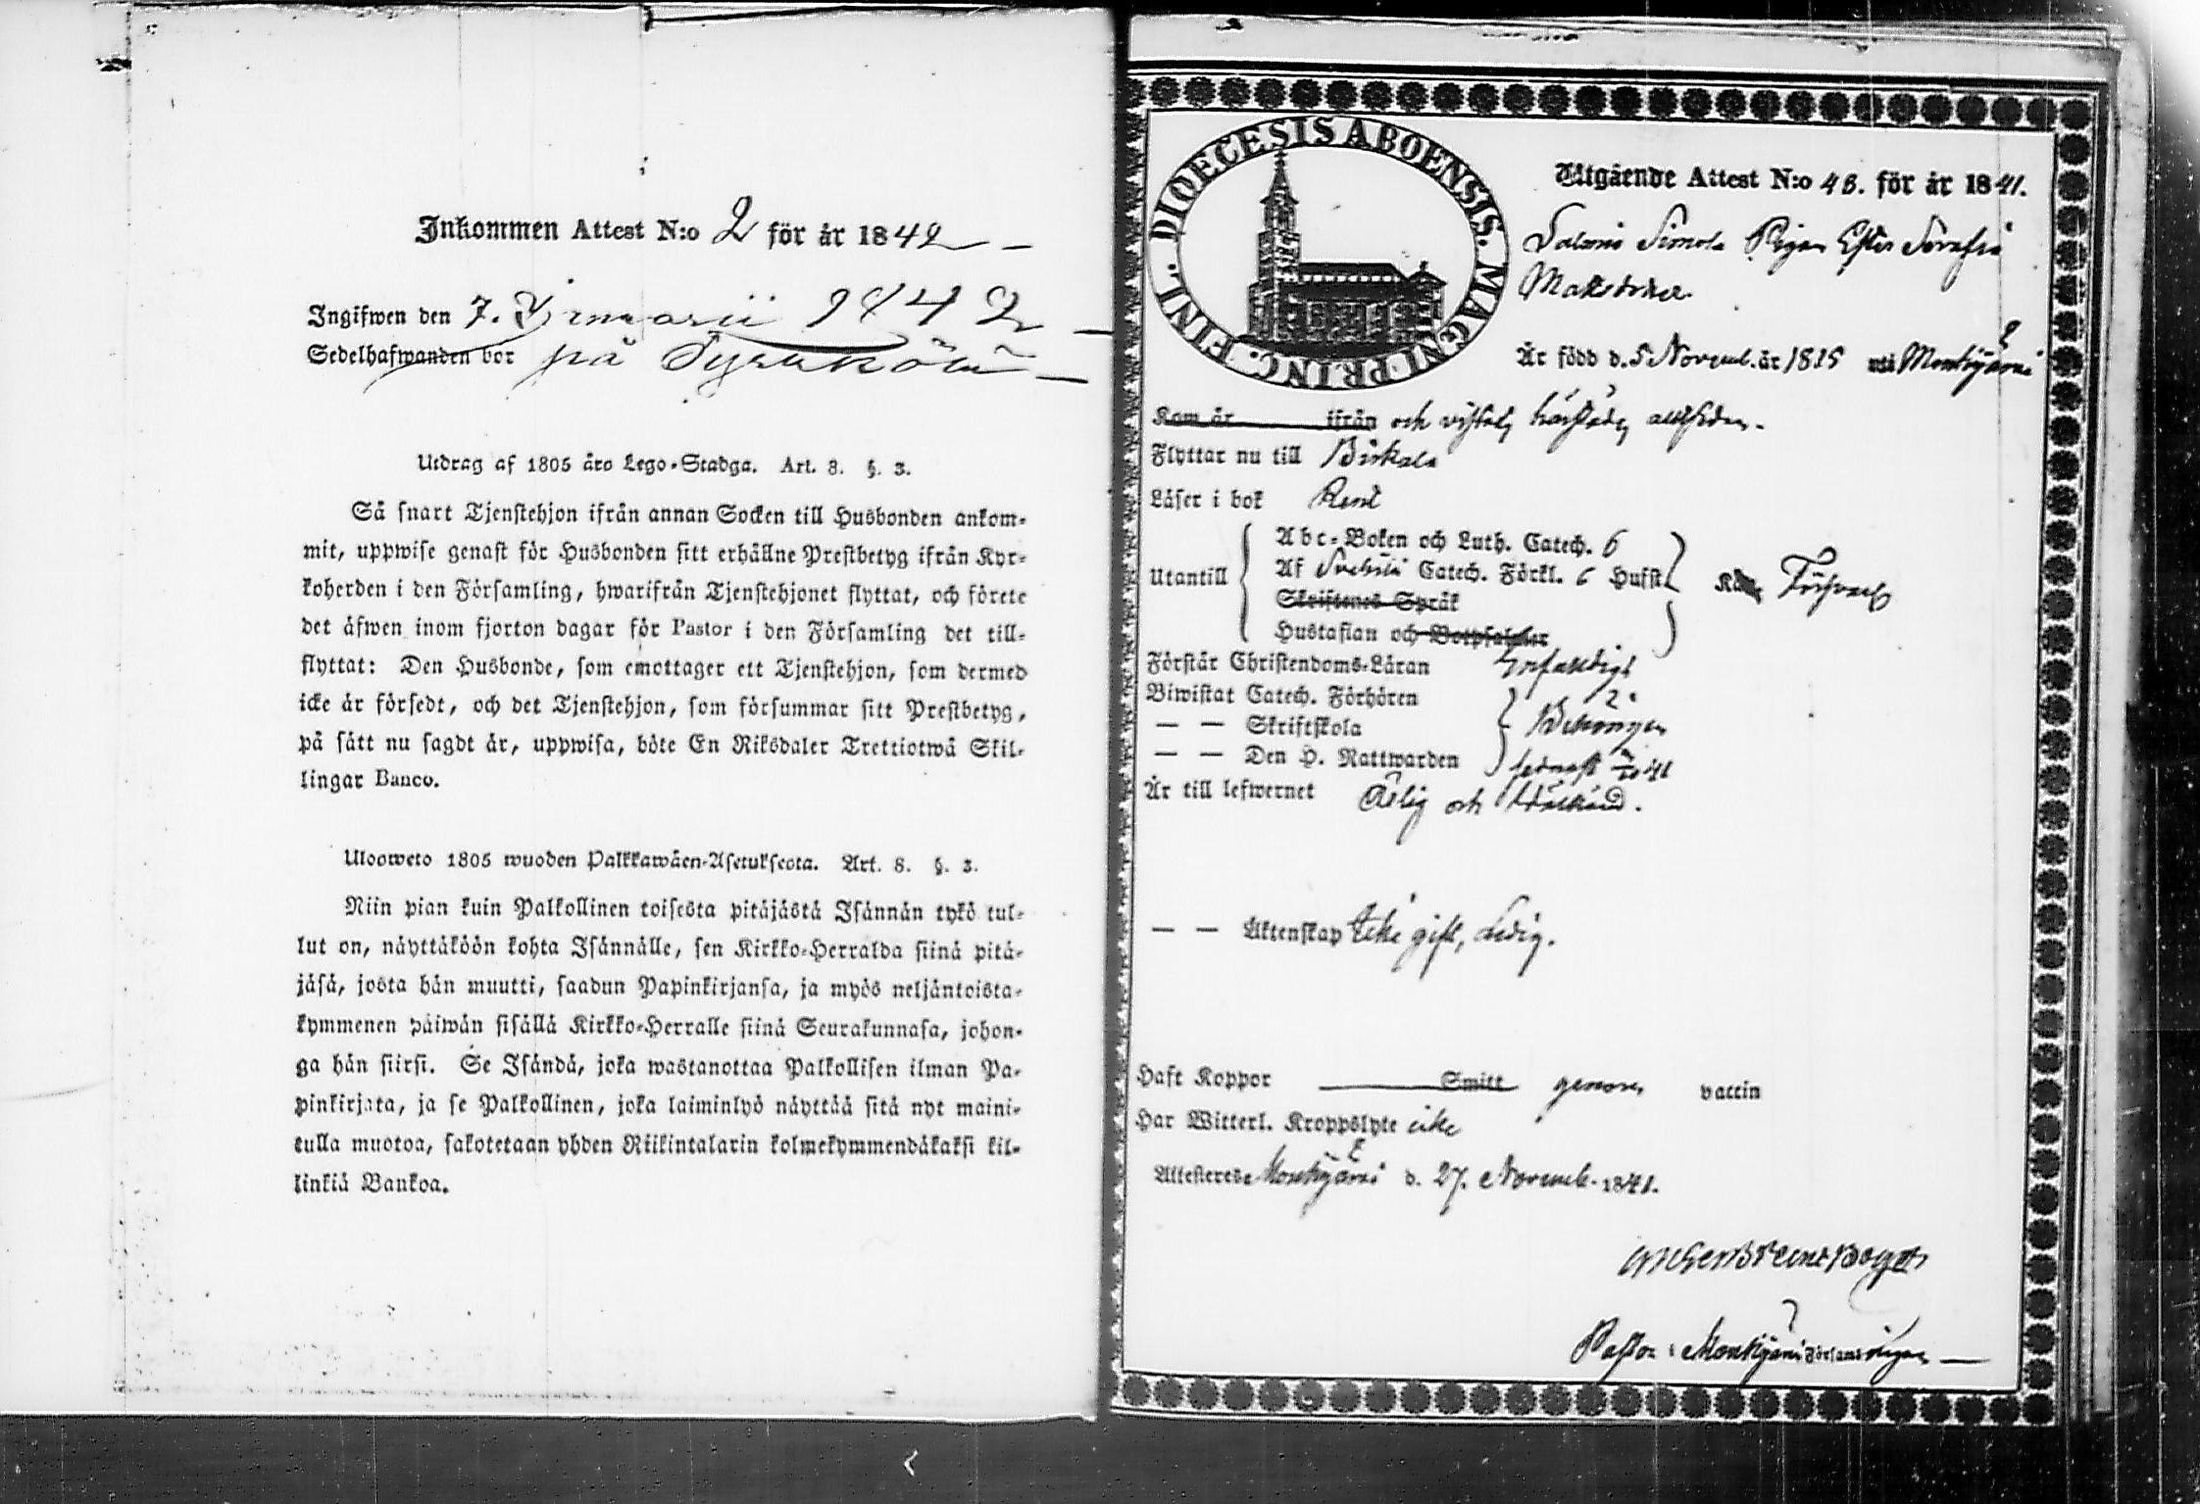 Inkommen Attest N:o 2 för år 1842
Ingifwen den 7. Januarii 1842
Sedelhafwanden bor på
Utdrag af 1805 åro Lego-Stadga. Art. 8. §. 3.
Så snart Tjenstehjon ifrån annan Socken till Husbonden ankom-
mit, uppwise genast för Husbonden sitt erhållne Prestbetyg ifrån Kyr-
koherden i den Församling, hwarifrån Tjenstehjonet flyttat, och förete
det åfwen inom fjorton dagar för Pastor i den Församling det till-
flyttat: Den Husbonde, som emottager ett Tjenstehjon, som dermed
icke år försedt, och det Tjenstehjon, som försummar sitt Prestbetyg,
på sått nu sagdt år, uppwisa, böte En Riksdaler Trettiotwå Skil-
lingar Banco.
Ulooweto 1805 wuoden Palkkawåen-Asetukseota. Art. 8. §. 3.
Niin pian kuin Palkollinen toisesta pitåjåstå Isånnån tykö tul-
lut on, nåyttåköön kohta Isånnålle, sen Kirkko-Herralda siinå pitå-
jåså, josta hån muutti, saadun Papinkirjansa, ja myös neljåntoista-
kymmenen påiwån sisållå Kirkko-Herralle siinå Seurakunnasa, johon-
ga hån siirsi. Se Isåndå, joka wastanottaa Palkollisen ilman Pa-
pinkirjata, ja se Palkollinen, joka laiminlyö nåyttåå sitå nyt maini-
tulla muotoa, sakotetaan yhden Riikintalarin kolmekymmendåkaksi kil-
linkiå Bankoa.
DIOECESIS ABOENSIS. MAGNI PRINC. FINL.
Utgående Attest N:o 48. för år 1841.
Simola Pigan
År född d. 5 Novemb. år 1815 uti Mouhijärvi
Kom år ifrån och
Flyttar nu till Birkala
Låser i bok Rent
Utantill
Abc-Boken och Luth. Catech. 6
Af Svebilii Catech. Förkl. 6 Hufst.
Skriftenes Språk
Hustaflan och Botpsalmer
Försvarl.
Förstår Christendoms-Låran Enfaldigt
Biwistat Catech. Förhören
— — Skriftskola Behörigen
— — Den H. Nattwarden 41
År till lefwernet Ärlig och Wälkänd.
— — Åktenskap Icke gift, Ledig.
Haft Koppor Smitt genom vaccin
Har Witterl. Kroppslyte icke
Attesterede Mouhijärvi d. 27. Novemb. 1841.
Pastor i Mouhijärvi Församlingen